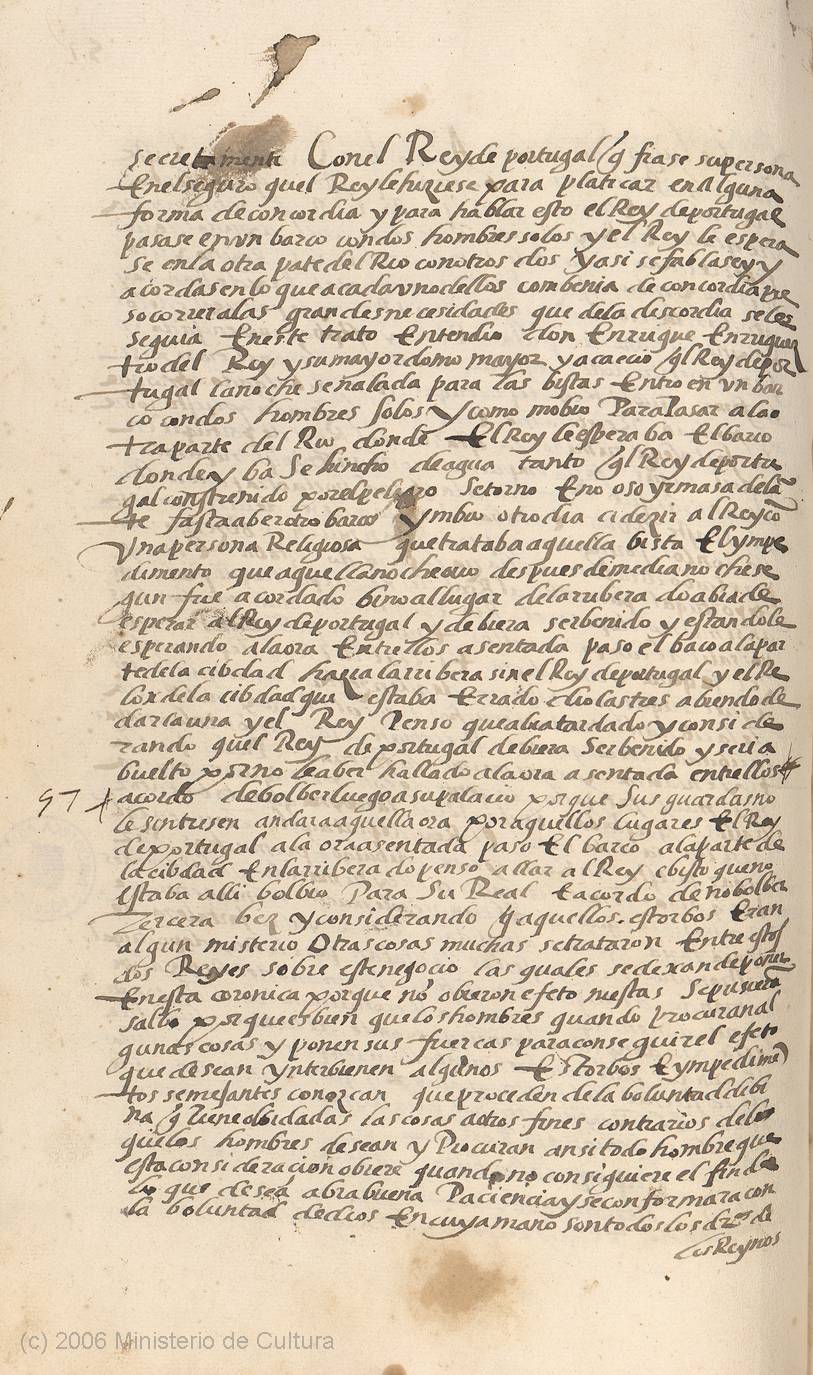 secretamente Con el Rey de portugal q̃ fiase su persona
En el seguro quel Rey le hiziese para platicar en alguna
forma de concordia y para hablar esto el Rey de portugal
pasase en vn barco con dos hombres solos y el Rey le espera
se en la otra parte del Rio con otros dos y asi se fablasen y
acordasen lo que a cada vno dellos combenia de concordia
socorrer a las grandes necesidades que de la discordia se les
seguia En este trato Entendio don Enrrique Enrriquez
tio del Rey y su mayordomo mayor y acaecio q̃l Rey de por
tugal la noche señalada para las bistas Entro en vn bar
co con dos hombres solos y como mobio Para Pasar a la o
tra parte del Rio donde El Rey le esperaba El barco
donde yba Se hincho de agua tanto q̃l Rey de portu
gal constrenido por el peligro Se torno E no oso yr mas adelã
te fasta aber otro barco ymbio otro dia a dezir al Rey cõ
vna persona Religiosa que trataba aquella bista El ympe
dimento que aquella noche ouo despues de media noche se
gun fue acordado bino al lugar de la ribera do abia de
esperar al Rey de portugal y debiera ser benido y estandole
esperando a la ora Entrellos asentada paso el baco a la par
te de la cibdad hacia la rribera sin el Rey de portugal y el Re
lox de la cibdad que estaba Errado dio las tres abiendo de
dar la una y el Rey Penso que abia tardado y conside
rando quel Rey de portugal debiera Ser benido y seria
buelto por no le aber hallado a la ora asentada entrellos
57 acordo de bolber luego a su palacio porque Sus guardas no
le sintiesen andar a aquella ora por aquellos lugares El Rey
de portugal a la ora asentada paso El barco a la parte de
la cibdad En la rribera do penso allar al Rey E bisto que no
Estaba alli bolbio Para Su Real E acordo de no bolber
Tercera bez y considerando q̃ aquellos estorbos Eran
algun misterio Otras cosas muchas se trataron Entre estos
dos Reyes sobre este negocio las quales se dexan de poner
En esta coronica porque no obieron efeto ni estas Se pusieran
salbo porque es bien que los hombres quando procuran al
gunas cosas y ponen sus fuercas para conseguir el efeto
que desean ynterbienen algunos Estorbos E ympedimẽ
tos semejantes conozcan que proceden de la boluntad dibi
na q̃ tiene obidadas las cosas a otros fines contrarios de lo
que los hombres desean y Procuran ansi todo hombre que
esta consideracion obiere quando no consiguiere el fin de
lo que desea abra buena Paciencia y se conformara con
la boluntad de dios En cuya mano son todos los drºs de
los Reynos
(c) 2006 Ministerio de Cultura